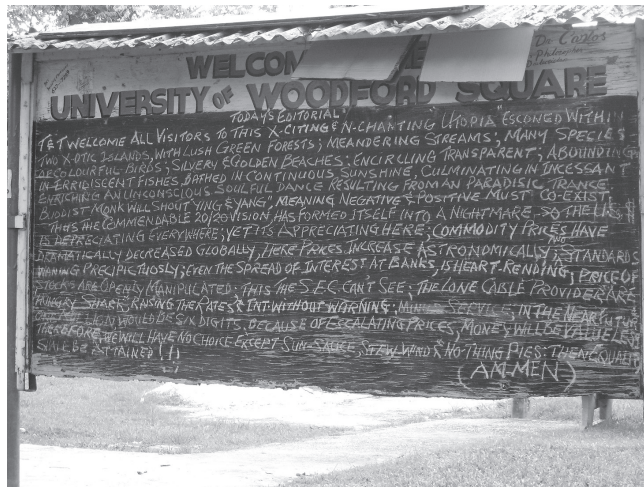 Dr Carlos
Philosopher
WELCOM
UNIVERSITY OF WOODFORD SQUARE
TODAYS EDITORIAL!
T&T WELCOME ALL VISITORS TO THIS X-CITING & N-CHANTING UTOPIA "ESCONED WITHIN
TWO X-OTIC ISLANDS, WITH LUSH GREEN FORESTS; MEANDERING STREAMS; MANY SPECIES
OF COLOURFUL BIRDS; SILVERY & GOLDEN BEACHES: ENCIRCLING TRANSPARENT; ABOUNDING
IN ERRIDISCENT FISHES, BATHED IN CONTINUOUS SUNSHINE, CULMINATING IN INCESSANT
ENRICHING AN UNCONSCIOUS SOULFUL DANCE RESULTING FROM AN PARADISIC TRANCE:
BUDDIST MONK WILL SHOUT "YING & YANG", MEANING NEGATIVE & POSITIVE MUST CO-EXIST
THUS THE COMMENDABLE 20/20 VISION, HAS FORMED ITSELF INTO A NIGHTMARE SO THE US
IS DEPRECIATING EVERYWHERE; YET ITS APPRECIATING HERE; COMMODITY PRICES HAVE
DRAMATICALLY DECREASED GLOBALLY, HERE PRICES INCREASE ASTRONOMICALLY; AND STANDARDS
WANING PRECIPICTIOUSLY; EVEN THE SPREAD OF INTEREST AT BANKS, IS HEART-RENDING; PRICE OF
STOCKS ARE OPENLY MANIPULATED: THIS THE S.E.C. CAN'T SEE; THE LONE CABLE PROVIDER ARE
HUNGRY SHARK, RAISING THE RATES & INT. WITHOUT WARNING; IN THE NEAR FUTURE
WOULD BE SIX DIGITS, BECAUSE OF ESCALATING PRICES, MONEY WILL BE VALUE LESS
THEREFORE, WE WILL HAVE NO CHOICE EXCEPT SUN-SAUCE, STEW WIND & NO-THING PIES: THEN EQUALITY
BE ATTAINED!!!
(AM-MEN)